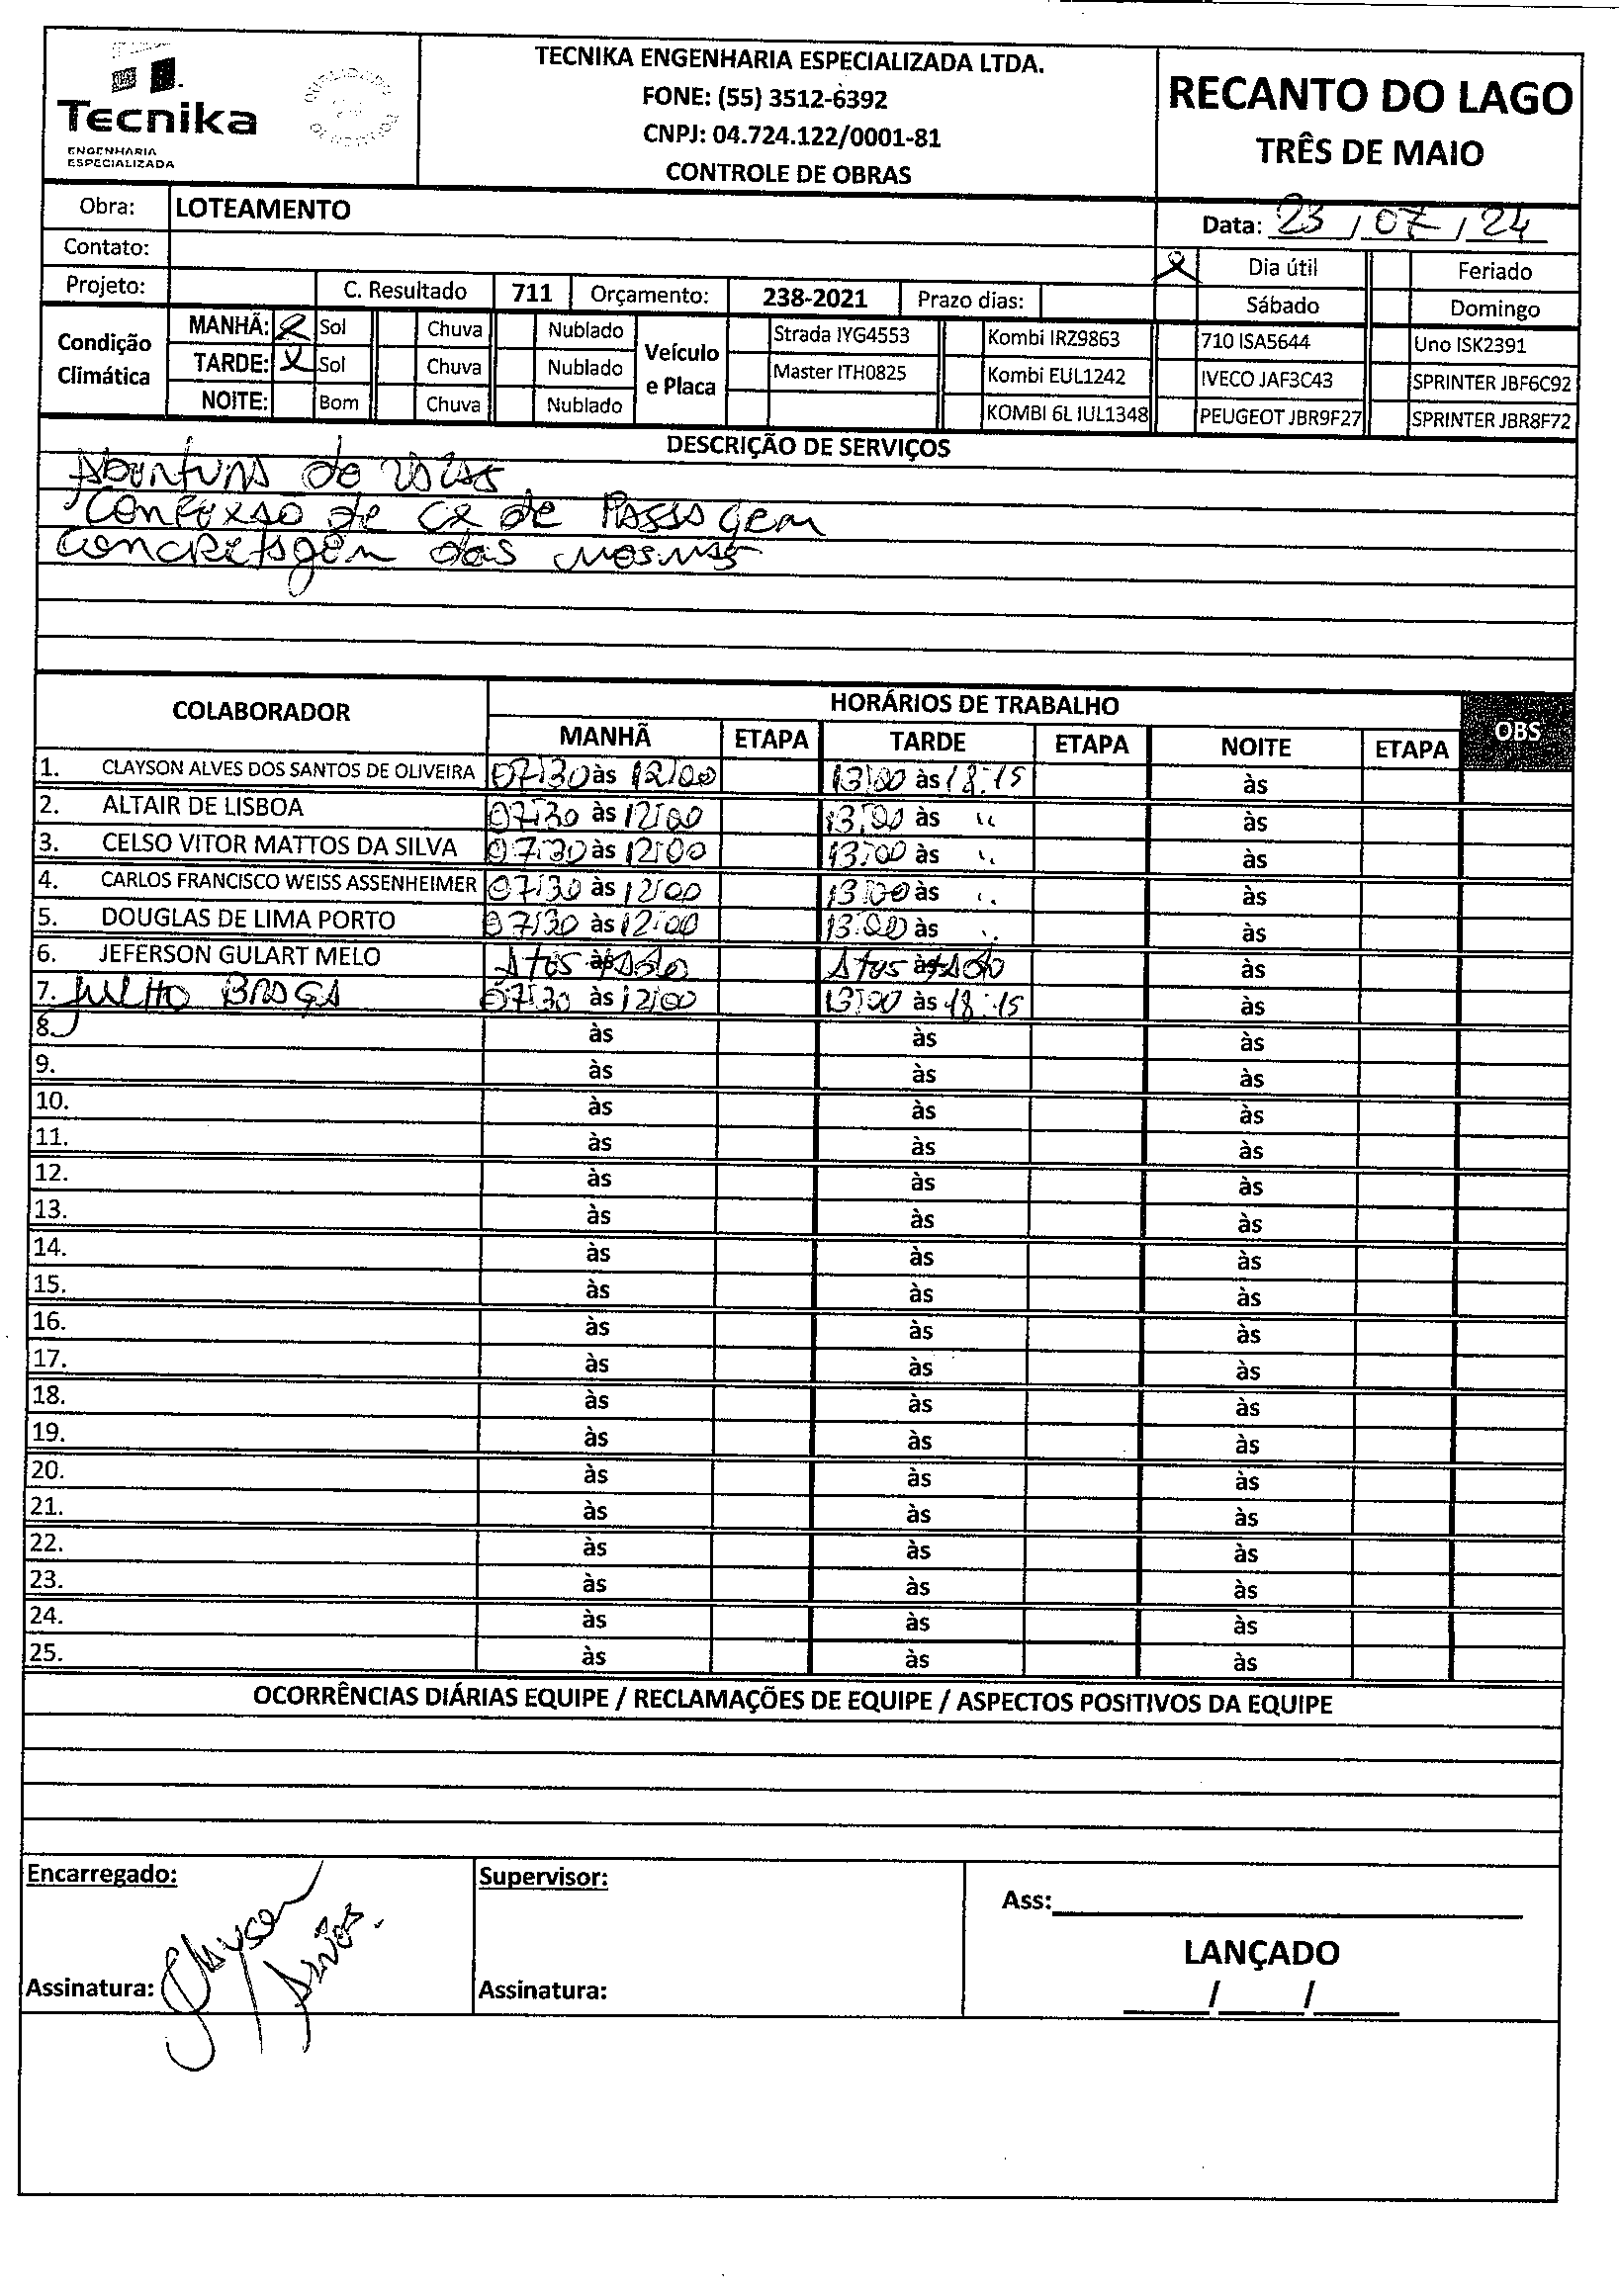 Tecnika
ENGENHARIA
ESPECIALIZADA
TECNIKA ENGENHARIA ESPECIALIZADA LTDA.
FONE: (55) 3512-6392
CNPJ: 04.724.122/0001-81
CONTROLE DE OBRAS
RECANTO DO LAGO
TRÊS DE MAIO
Obra: LOTEAMENTO
Data: 23 / 07 / 24
Contato:
X Dia útil Feriado
Projeto: C. Resultado 711 Orçamento: 238-2021 Prazo dias: Sábado Domingo
Condição Climática
MANHÃ: X Sol Chuva Nublado
TARDE: X Sol Chuva Nublado
NOITE: Bom Chuva Nublado
Veículo e Placa
Strada IYG4553 Kombi IRZ9863 710 ISA5644 Uno ISK2391
Master ITH0825 Kombi EUL1242 IVECO JAF3C43 SPRINTER JBF6C92
KOMBI 6L IUL1348 PEUGEOT JBR9F27 SPRINTER JBR8F72
DESCRIÇÃO DE SERVIÇOS
Abertura de valas
Conexão de cx de Passagem
Concretagem das mesmas
COLABORADOR HORÁRIOS DE TRABALHO OBS
MANHÃ ETAPA TARDE ETAPA NOITE ETAPA
1. CLAYSON ALVES DOS SANTOS DE OLIVEIRA 07:30 às 12:00 13:00 às 18:15 às
2. ALTAIR DE LISBOA 07:30 às 12:00 13:00 às " às
3. CELSO VITOR MATTOS DA SILVA 07:30 às 12:00 13:00 às " às
4. CARLOS FRANCISCO WEISS ASSENHEIMER 07:30 às 12:00 13:00 às " às
5. DOUGLAS DE LIMA PORTO 07:30 às 12:00 13:00 às " às
6. JEFERSON GULART MELO às às às
7. JULHO BRAGA 07:30 às 12:00 13:00 às 18:15 às
8. às às às
9. às às às
10. às às às
11. às às às
12. às às às
13. às às às
14. às às às
15. às às às
16. às às às
17. às às às
18. às às às
19. às às às
20. às às às
21. às às às
22. às às às
23. às às às
24. às às às
25. às às às
OCORRÊNCIAS DIÁRIAS EQUIPE / RECLAMAÇÕES DE EQUIPE / ASPECTOS POSITIVOS DA EQUIPE
Encarregado:
Assinatura: Clayson Alves
Supervisor:
Assinatura:
Ass:
LANÇADO
/ /